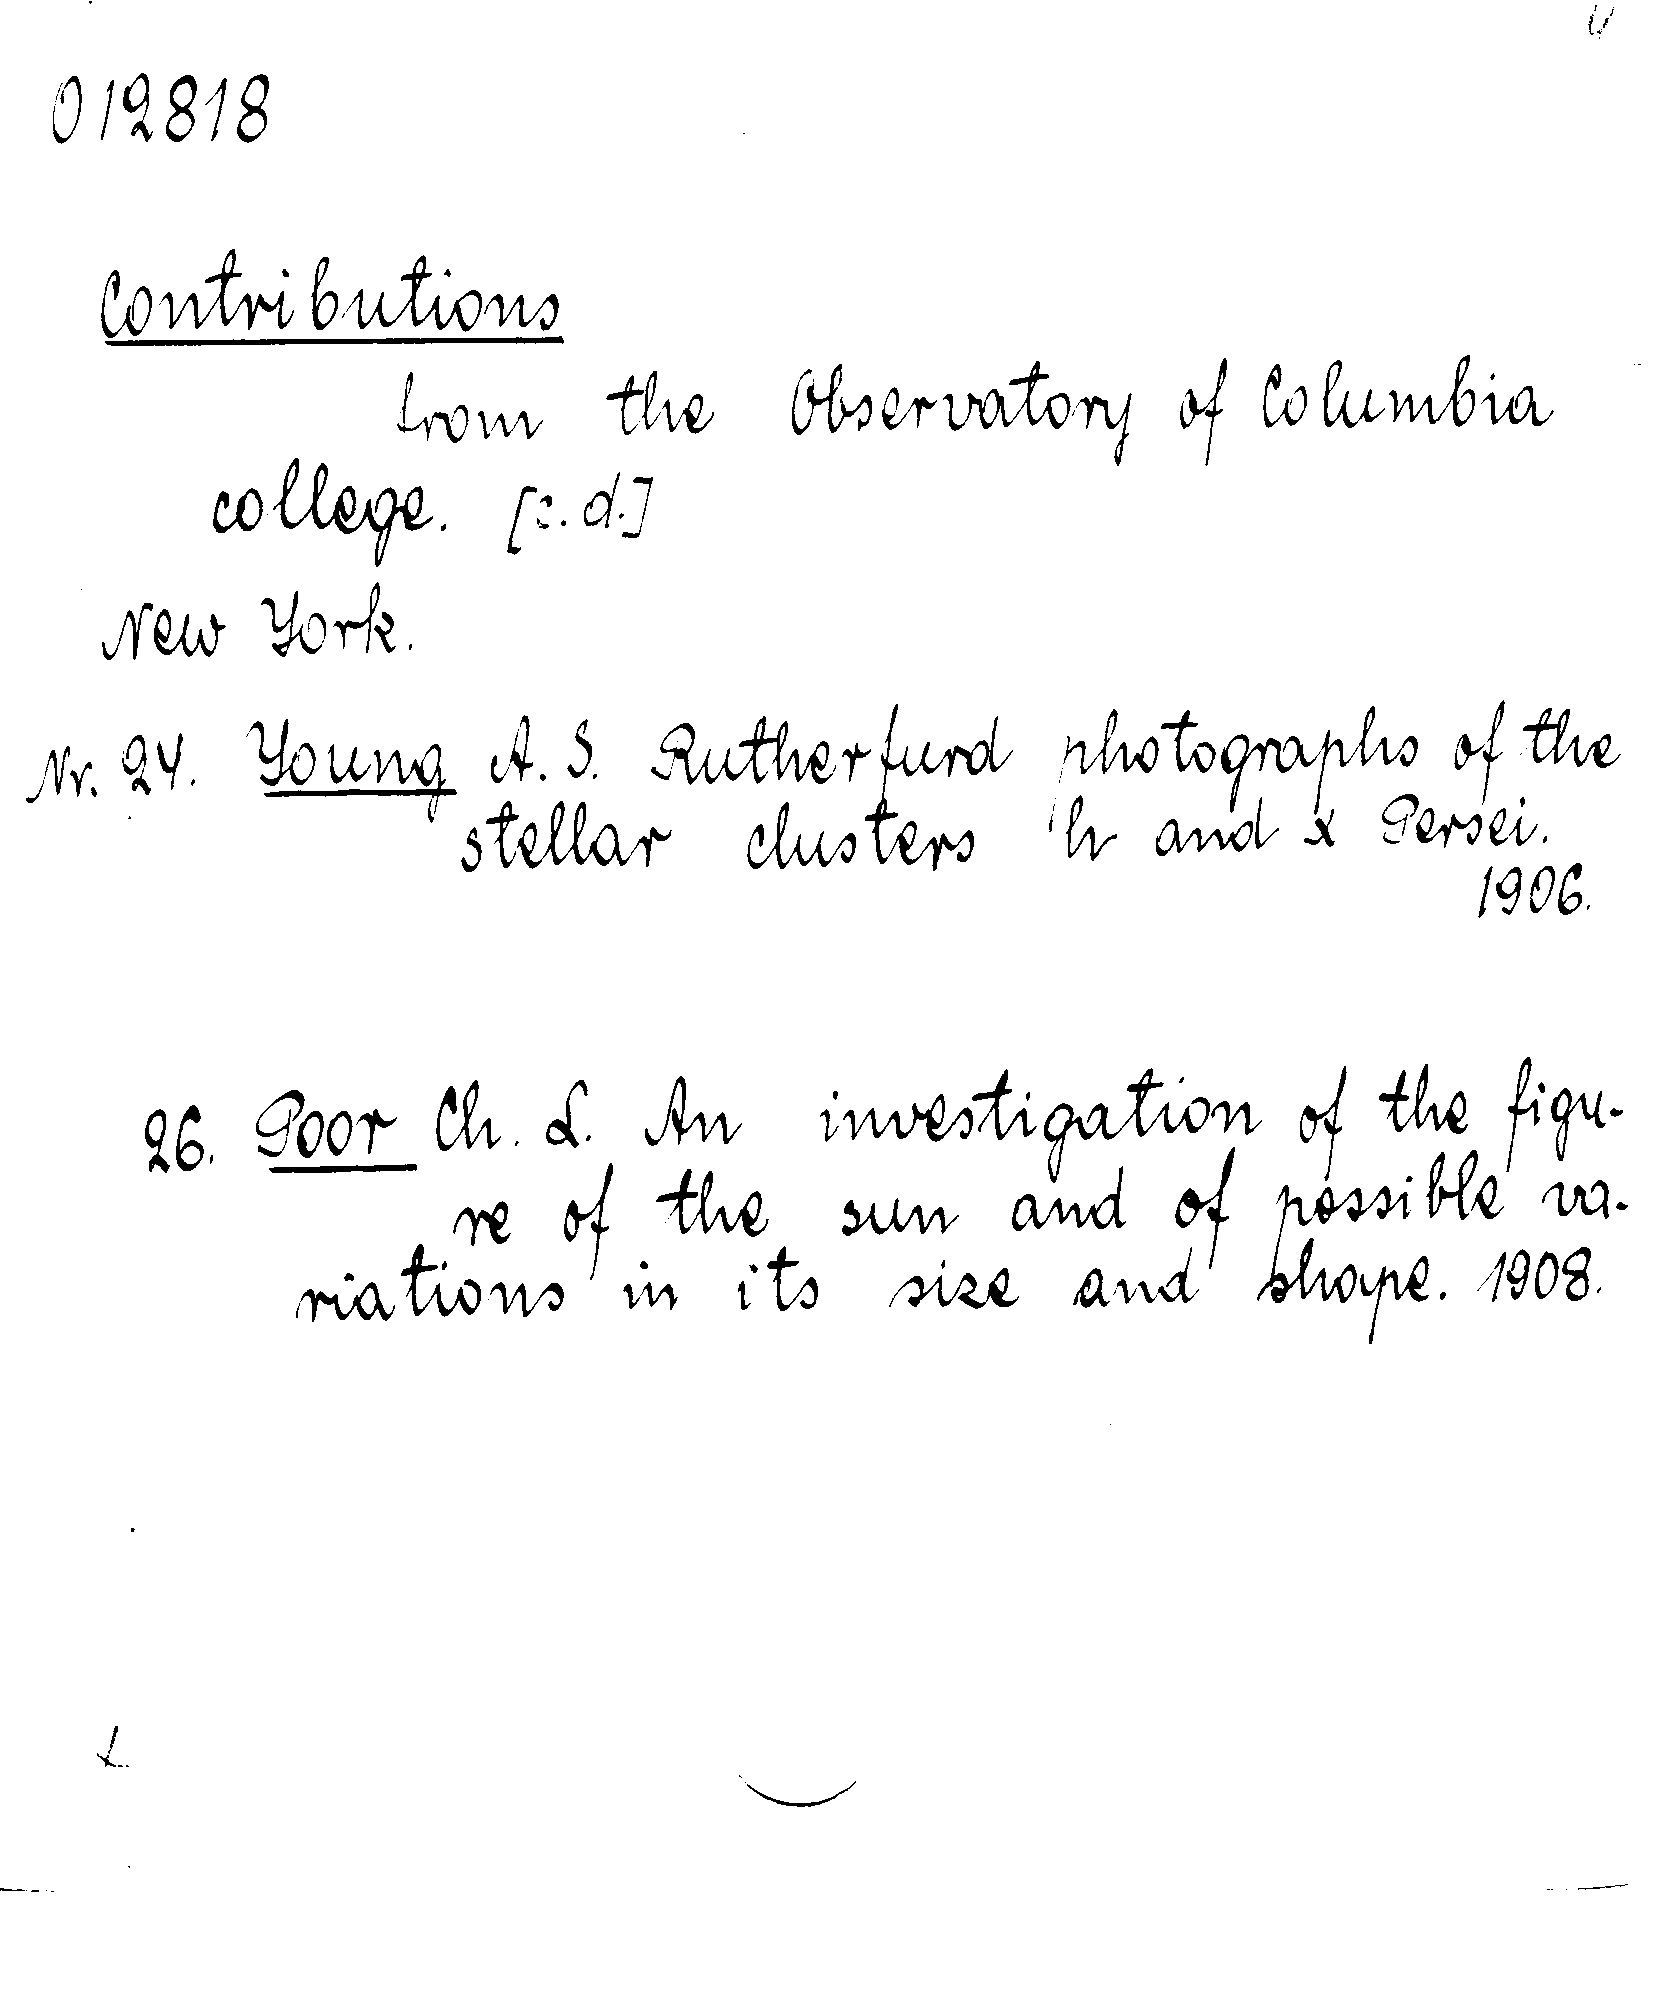 012818
Contributions
from the Observatory of Columbia
college. [c.d.]
New York.
Nr. 24. Young A. S. Rutherfurd photographs of the
stellar clusters h and x Persei.
1906.
26. Poor Ch. L. An investigation of the figu-
re of the sun and of possible va-
riations in its size and shape. 1908.